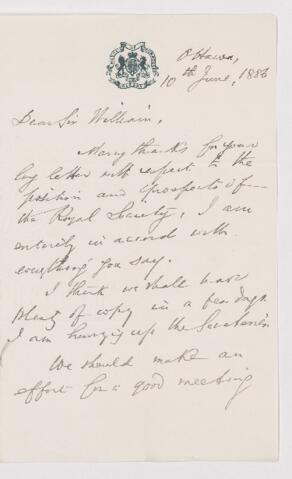 Ottawa,
10th June, 1886
Dear Sir William,
Many thanks for your
long letter with respect to the
position and prospects of
the Royal Society. I am
entirely in accord with
everything you say.
I think we shall have
plenty of copy in a few days
I am hurrying up the Secretaries
We should make an
effort for a good meeting